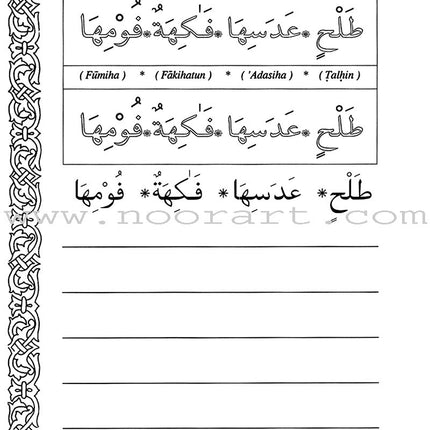 طَلْحٍ * عَدَسِهَا * فَـٰكِهَةٌ * فُوْمِهَا
( Fūmiha ) * ( Fākihatun ) * ( 'Adasiha ) * ( Ṭalḥin )
طَلْحٍ * عَدَسِهَا * فَـٰكِهَةٌ * فُوْمِهَا
طَلْحٍ * عَدَسِهَا * فَـٰكِهَةٌ * فُوْمِهَا
www.noorart.com